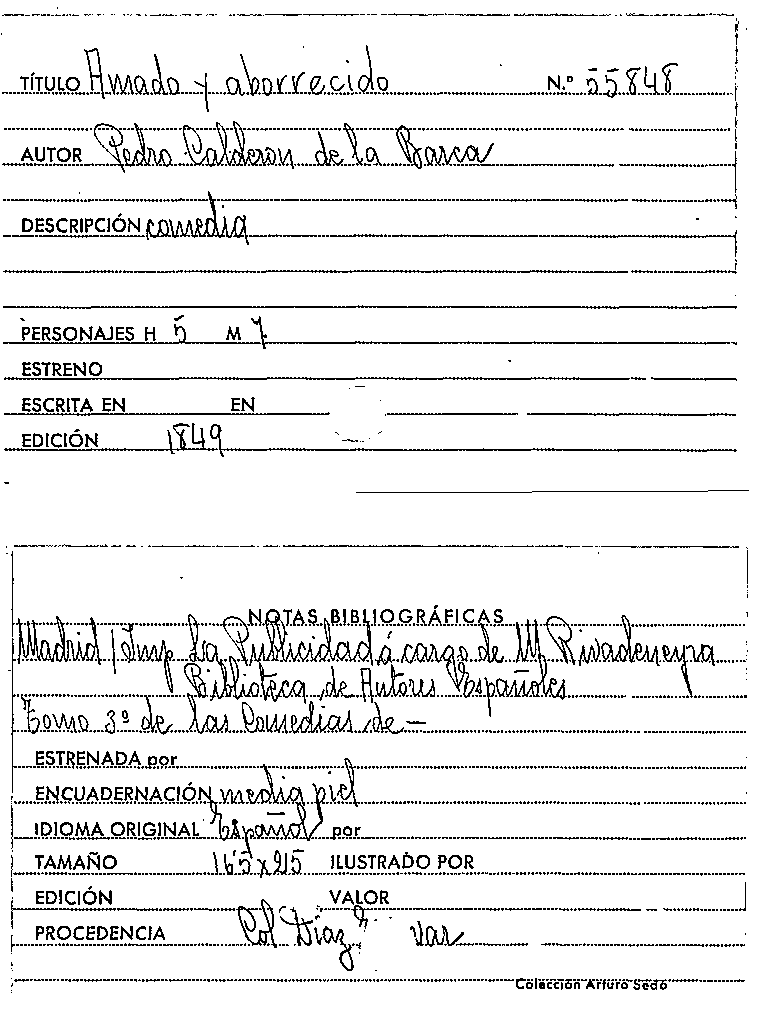 TÍTULO Amado y aborrecido N.º 55848
AUTOR Pedro Calderon de la Barca
DESCRIPCIÓN comedia
PERSONAJES H 5 M 7
ESTRENO
ESCRITA EN EN
EDICIÓN 1849
NOTAS BIBLIOGRÁFICAS
Madrid / Imp La Publicidad á cargo de M Rivadeneyra
Biblioteca de Autores Españoles
Tomo 3º de las Comedias de —
ESTRENADA por
ENCUADERNACIÓN media piel
IDIOMA ORIGINAL Español por
TAMAÑO 16'5 x 25 ILUSTRADO POR
EDICIÓN VALOR
PROCEDENCIA Col Díaz
Colección Arturo Sedó